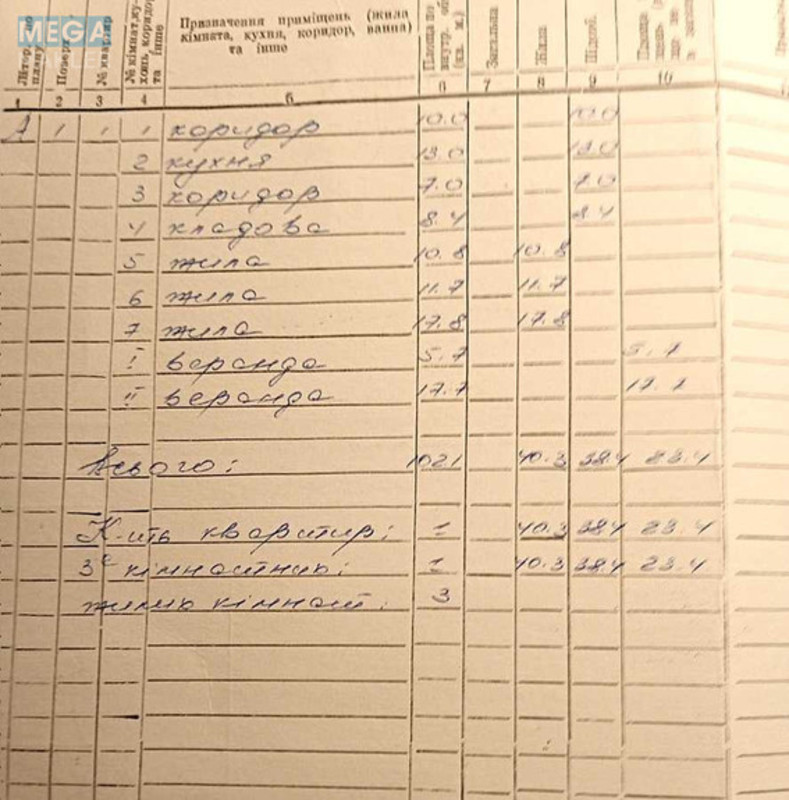 MEGA
Літер. по плану
Поверх
№ квартир
№ кімнат, кухонь, коридор. та інше
Призначення приміщень (жила кімната, кухня, коридор, ванна) та інше
Площа по внутр. об (кв. м.)
Загальна
Жила
Підсоб.
Площа
1 2 3 4 5 6 7 8 9 10
А 1 1 1 коридор 10.0 10.0
2 кухня 13.0 13.0
3 коридор 7.0 7.0
4 кладова 8.4 8.4
5 жила 10.8 10.8
6 жила 11.7 11.7
7 жила 17.8 17.8
I веранда 5.7 5.7
II веранда 17.7 17.7
Всього: 102.1 40.3 38.4 23.4
К-ить квартир: 1 40.3 38.4 23.4
3х кімнатних: 1 40.3 38.4 23.4
жилих кімнат: 3